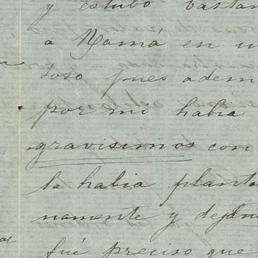 y estubo bastan
a Mamá en u
toso pues adem
por mi habia
gravisimos con
le habia planta
namente y dejan
fué preciso que